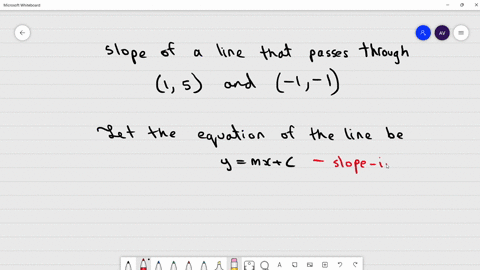 Microsoft Whiteboard
AV
slope of a line that passes through
(1, 5) and (-1, -1)
Let the equation of the line be
y = mx + c - slope-i